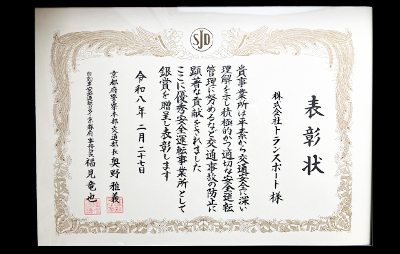 SJD
表彰状
株式会社トランスポート 様
貴事業所は平素から交通安全に深い
理解を示し積極的かつ適切な安全運転
管理に努めるなど交通事故の防止に
顕著な貢献をされました
ここに優秀安全運転事業所として
銀賞を贈呈し表彰します
令和八年 二月二十七日
京都府警察本部交通部長 奥野 雅義
自動車安全運転センター京都府事務所長 福見 竜也